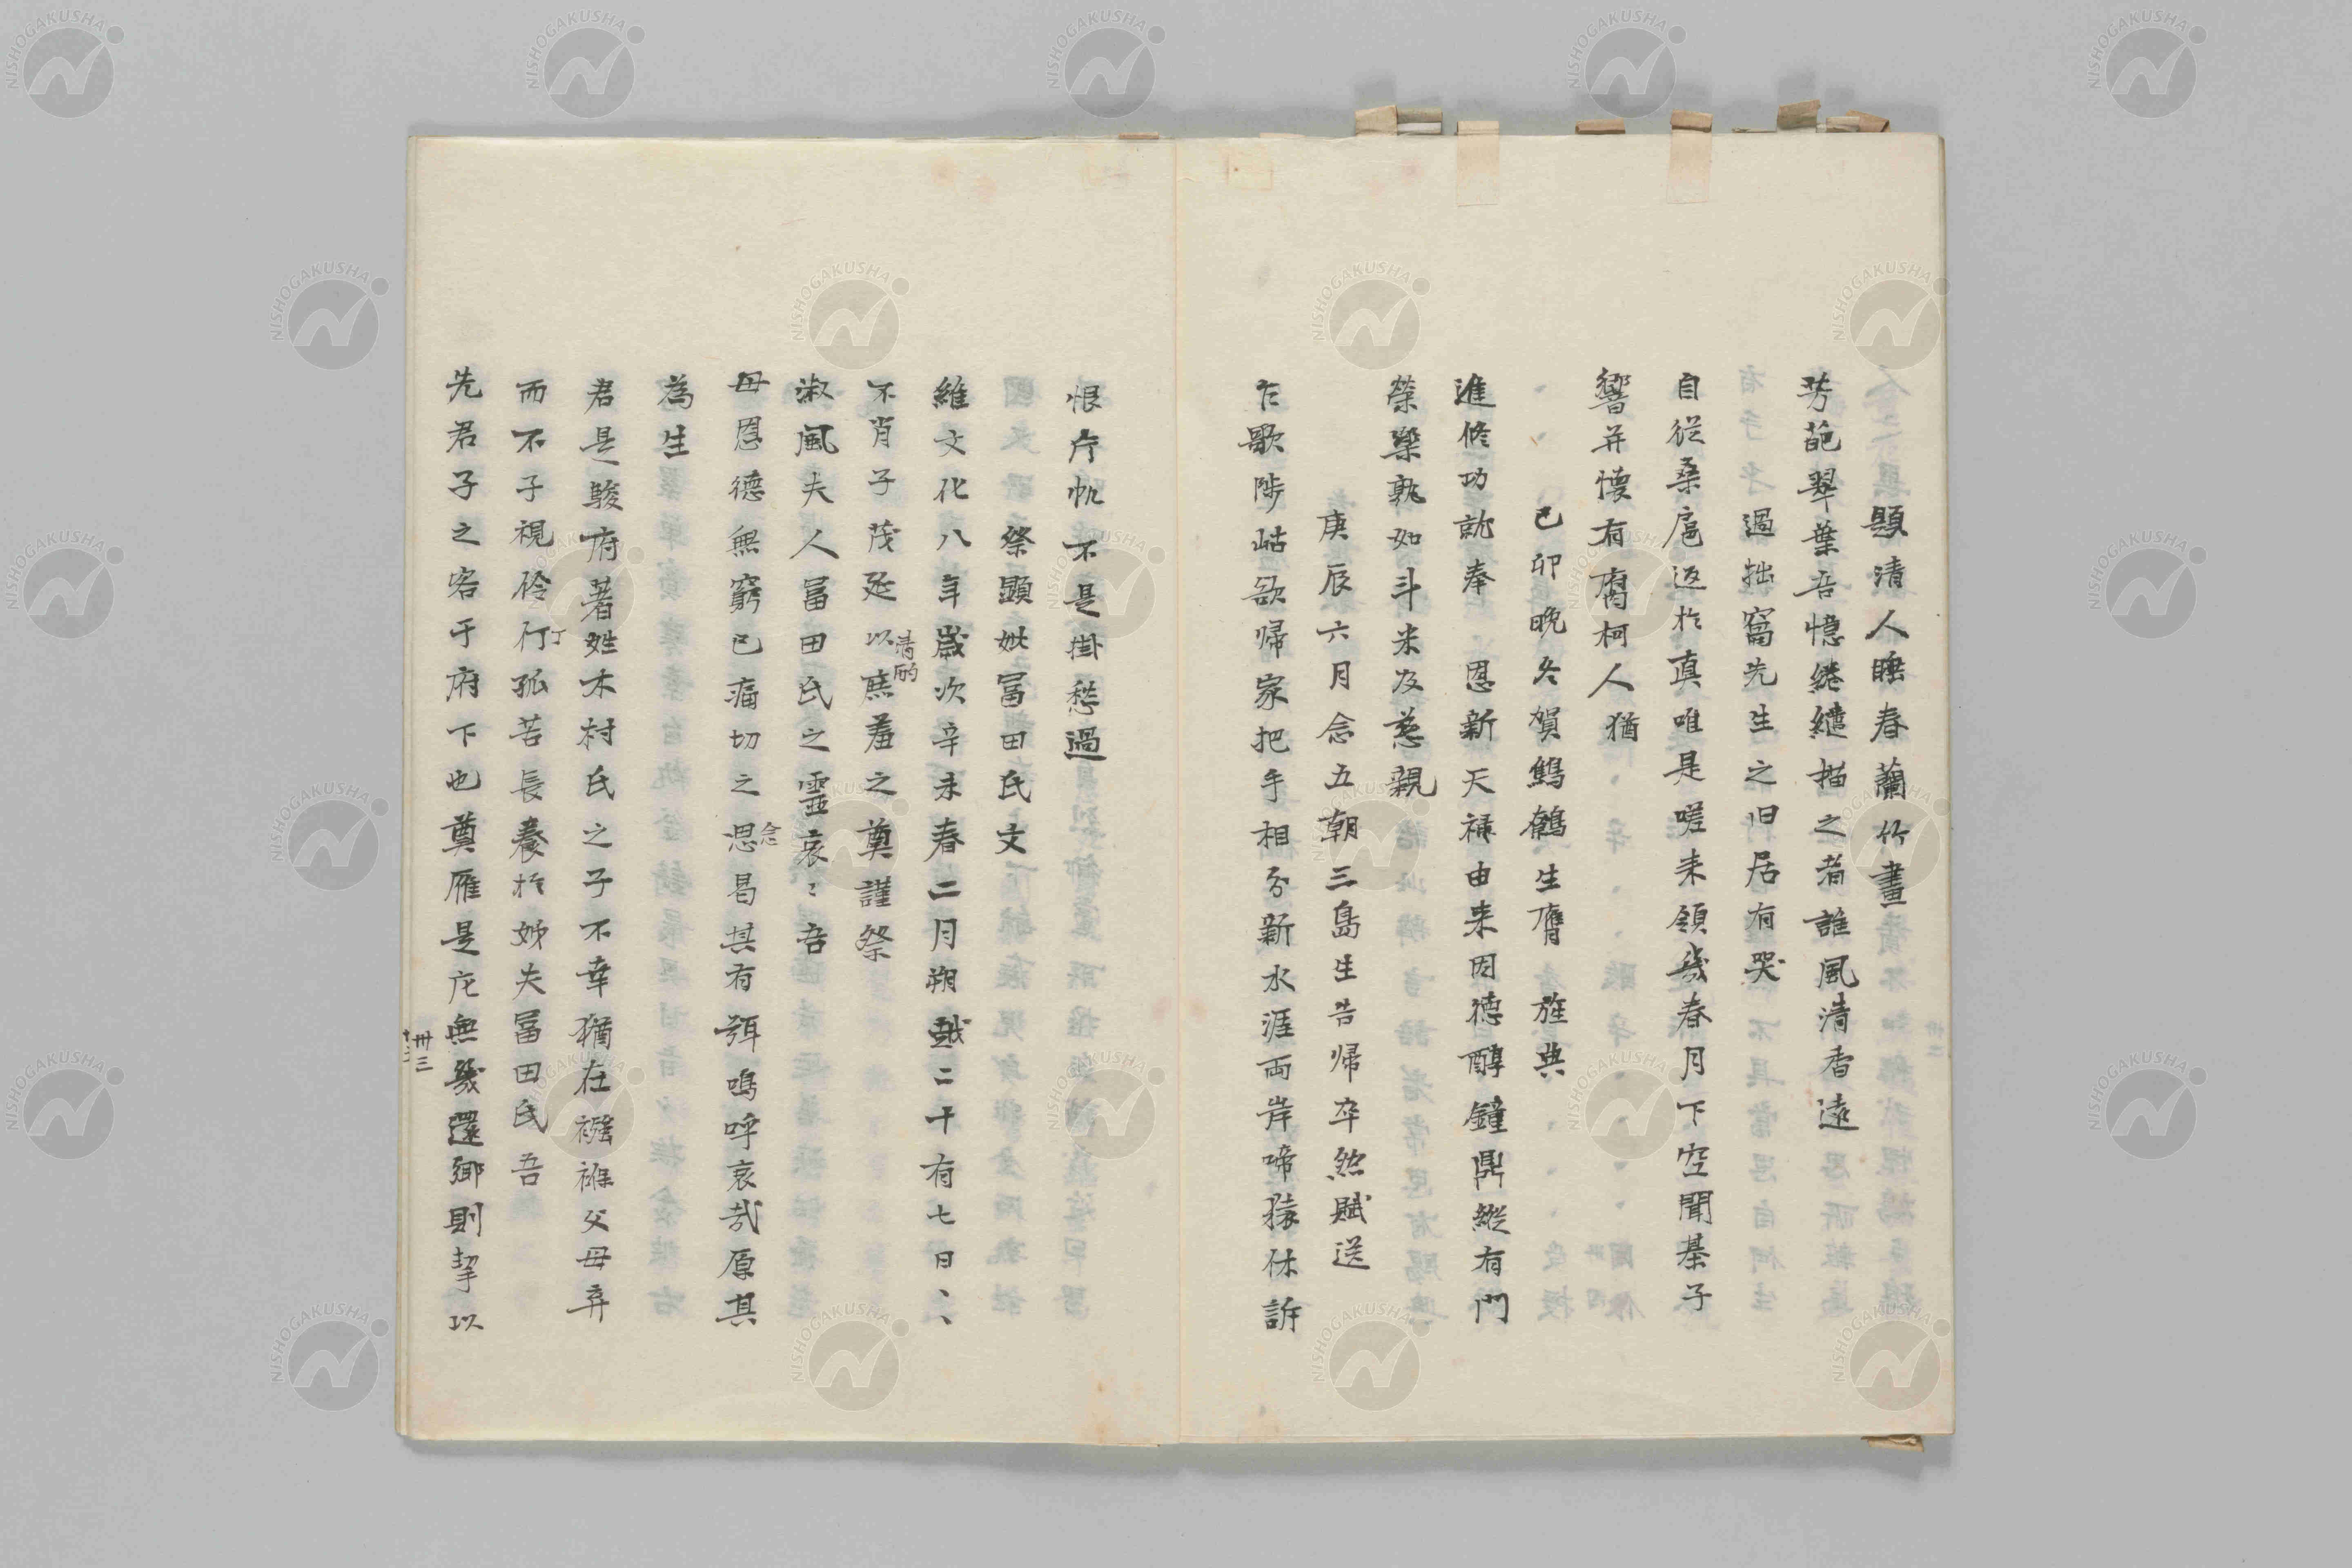 題清人睡春蘭竹畫
芳葩翠葉吾憶綣繾描之者誰風清香遠
過拙窩先生之旧居有哭
自從桑扈返於真唯是嗟来領幾春月下空聞棊子
響并懐有腐柯人猶
己卯晩冬賀鷦鷯生膺　旌典
進修功就奉　恩新天禄由来因徳醇鐘鼎縦有門
榮樂孰如斗米及慈親
庚辰六月念五朝三島生告帰卒然賦送
乍歌陟岵欲帰家把手相分新水涯両岸啼猿休訴
恨片帆不是掛愁過
祭顕妣冨田氏文
維文化八年歳次辛未春二月朔越二十有七日、、
不肖子茂延以清酌庶羞之奠謹祭
淑風夫人冨田氏之靈哀〻吾
母恩德無窮已痛切之思念曷其有弭嗚呼哀哉原其
為生
君是駿府著姓木村氏之子不幸猶在襁褓父母弃
而不子視伶仃丁孤苦長養於姊夫冨田氏吾
先君子之客于府下也奠雁是庀無幾還鄉則挈以
卅三